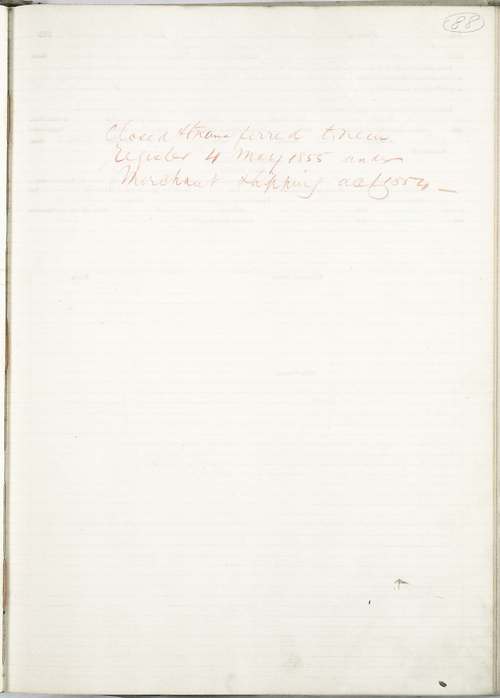 88
Closed & transferred to new
register 4 May 1855 under
Merchant Shipping act 1854 —